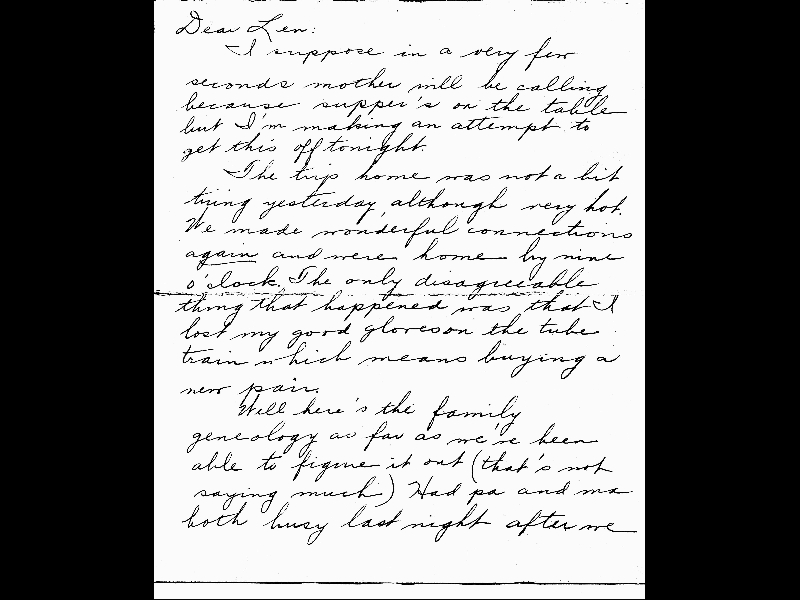 Dear Len:
I suppose in a very few
seconds mother will be calling
because supper's on the table
but I'm making an attempt to
get this off tonight.
The trip home was not a bit
tiring yesterday, although very hot.
We made wonderful connections
again and were home by nine
o'clock. The only disagreeable
thing that happened was that I
lost my good gloves on the tube
train which means buying a
new pair.
Well here's the family
geneology as far as we've been
able to figure it out (that's not
saying much) Had pa and ma
both busy last night after we